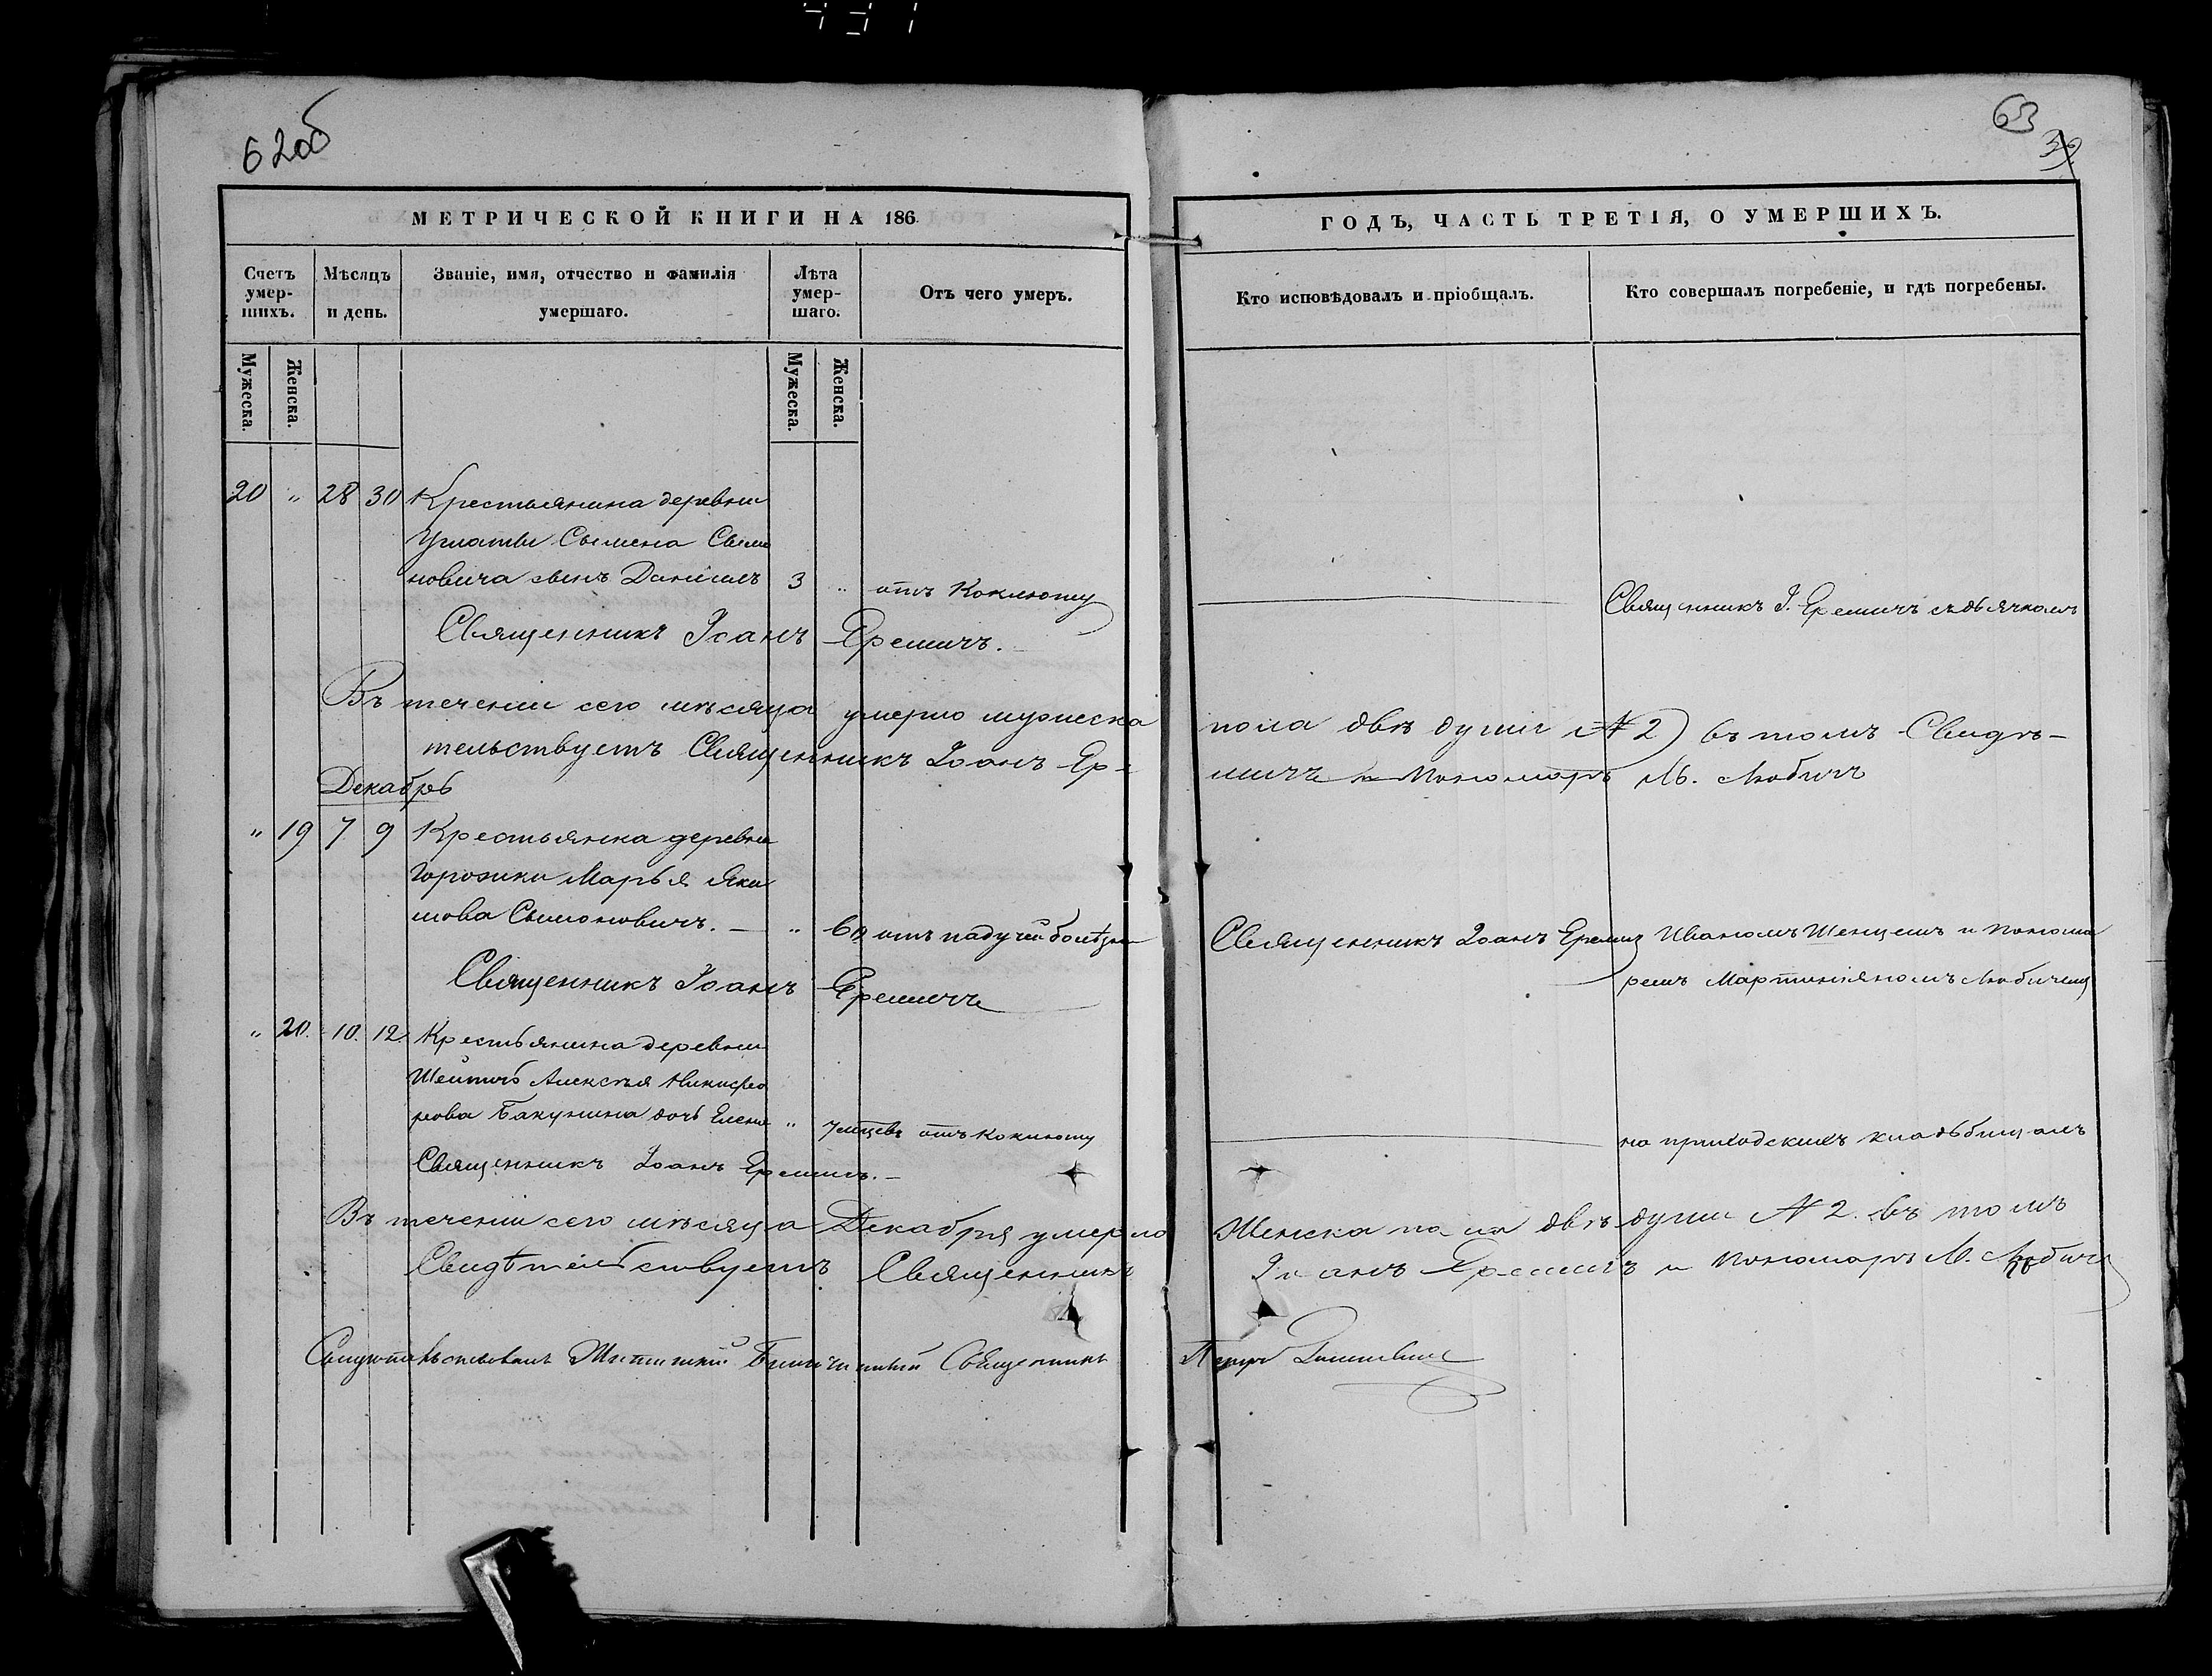 62об
63
39
МЕТРИЧЕСКОЙ КНИГИ НА 186
ГОДЪ, ЧАСТЬ ТРЕТІЯ, О УМЕРШИХЪ.
Счетъ умер-шихъ.
Мѣсяцъ и день.
Званіе, имя, отчество и фамилія умершаго.
Лѣта умер-шаго.
Отъ чего умеръ.
Кто исповѣдовалъ и пріобщалъ.
Кто совершалъ погребеніе, и гдѣ погребены.
Мужеска.
Женска.
Мужеска.
Женска.
20 " 28 30 Крестьянина деревни
Семена Симо
новича сынъ Даніилъ 3 " отъ Коклюшу
Священникъ І. Еремичъ съ дьячкомъ
Священникъ Іоанъ Еремичъ.
Въ теченіи сего мѣсяца умерло мужеска пола двѣ души № 2) въ томъ Свидѣ-
тельствуетъ Священникъ Іоанъ Ер-
мичъ и Пономарь М. Любичъ
Декабрь
" 19 7 9 Крестьянка деревни
Марья Яки
мова Симоновичъ. — " отъ падучей болѣзни
Священникъ Іоанъ Еремичъ Иваномъ Шенцемъ и понома
ремъ Мартиніяномъ Любичемъ
Священникъ Іоанъ Еремичъ
" 20. 10. 12. Крестьянина деревни
Алексѣя Никифо
рова Бакунина дочь Елена " 7 мѣсцевъ отъ коклюшу
на приходскихъ кладьбищахъ
Священникъ Іоанъ Еремичъ. —
Въ теченіи сего мѣсяца Декабря умерло Женска пола двѣ души № 2. въ томъ
Свидѣтельствуетъ Священникъ Іоанъ Еремичъ и Пономарь М. Любичъ
Священникъ Петръ